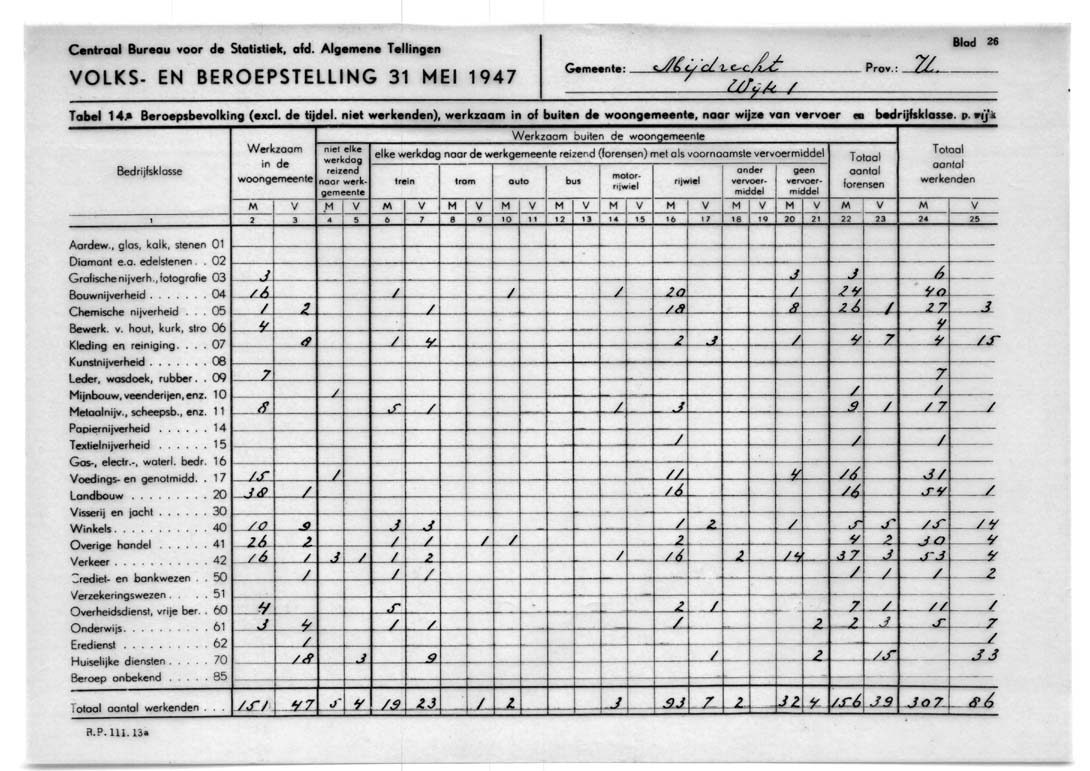 Centraal Bureau voor de Statistiek, afd. Algemene Tellingen
Blad 26
VOLKS- EN BEROEPSTELLING 31 MEI 1947
Gemeente: Mijdrecht Prov.: U.
Wijk 1
Tabel 14.a Beroepsbevolking (excl. de tijdel. niet werkenden), werkzaam in of buiten de woongemeente, naar wijze van vervoer en bedrijfsklasse. p. wijk
Bedrijfsklasse
Werkzaam in de woongemeente
Werkzaam buiten de woongemeente
niet elke werkdag reizend naar werkgemeente
elke werkdag naar de werkgemeente reizend (forensen) met als voornaamste vervoermiddel
trein tram auto bus motorrijwiel rijwiel ander vervoermiddel geen vervoermiddel
Totaal aantal forensen
Totaal aantal werkenden
M V M V M V M V M V M V M V M V M V M V M V M V
1 2 3 4 5 6 7 8 9 10 11 12 13 14 15 16 17 18 19 20 21 22 23 24 25
Aardew., glas, kalk, stenen 01
Diamant e.a. edelstenen . . 02
Grafische nijverh., fotografie 03 3 3 3 6
Bouwnijverheid . . . . . . . 04 16 1 1 1 20 1 24 40
Chemische nijverheid . . . 05 1 2 1 18 8 26 1 27 3
Bewerk. v. hout, kurk, stro 06 4 4
Kleding en reiniging. . . . 07 8 1 4 2 3 1 4 7 4 15
Kunstnijverheid . . . . . . . 08
Leder, wasdoek, rubber. . 09 7 7
Mijnbouw, veenderijen, enz. 10 1 1 1
Metaalnijv., scheepsb., enz. 11 8 5 1 1 3 9 1 17 1
Papiernijverheid . . . . . . 14
Textielnijverheid . . . . . . 15 1 1 1
Gas-, electr.-, waterl. bedr. 16
Voedings- en genotmidd. . 17 15 1 11 4 16 31
Landbouw . . . . . . . . . 20 38 1 16 16 54 1
Visserij en jacht . . . . . . 30
Winkels. . . . . . . . . . . 40 10 9 3 3 1 2 1 5 5 15 14
Overige handel . . . . . . 41 26 2 1 1 1 1 2 4 2 30 4
Verkeer . . . . . . . . . . . 42 16 1 3 1 1 2 1 16 2 14 37 3 53 4
Crediet- en bankwezen . . 50 1 1 1 1 1 1 2
Verzekeringswezen. . . . . 51
Overheidsdienst, vrije ber. . 60 4 5 2 1 7 1 11 1
Onderwijs. . . . . . . . . . 61 3 4 1 1 1 2 2 3 5 7
Eredienst . . . . . . . . . . 62 1 1
Huiselijke diensten . . . . . 70 18 3 9 1 2 15 33
Beroep onbekend . . . . . 85
Totaal aantal werkenden . . . 151 47 5 4 19 23 1 2 3 93 7 2 32 4 156 39 307 86
R.P.111.13a